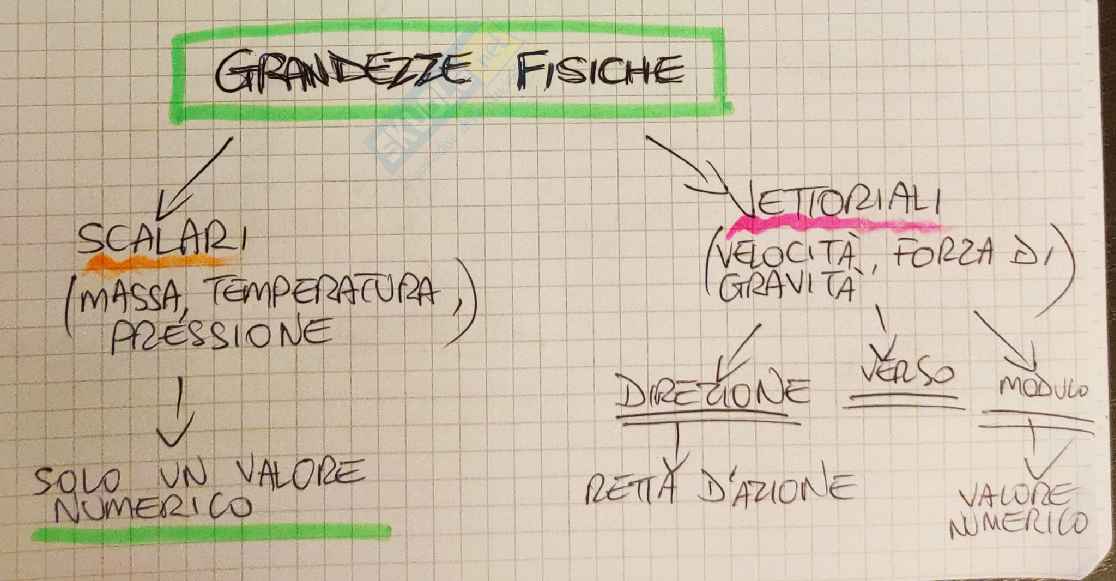 GRANDEZZE FISICHE
SCALARI
(MASSA, TEMPERATURA,
PRESSIONE)
SOLO UN VALORE
NUMERICO
VETTORIALI
(VELOCITÀ, FORZA DI
GRAVITÀ)
DIREZIONE
VERSO
MODULO
RETTA D'AZIONE
VALORE
NUMERICO